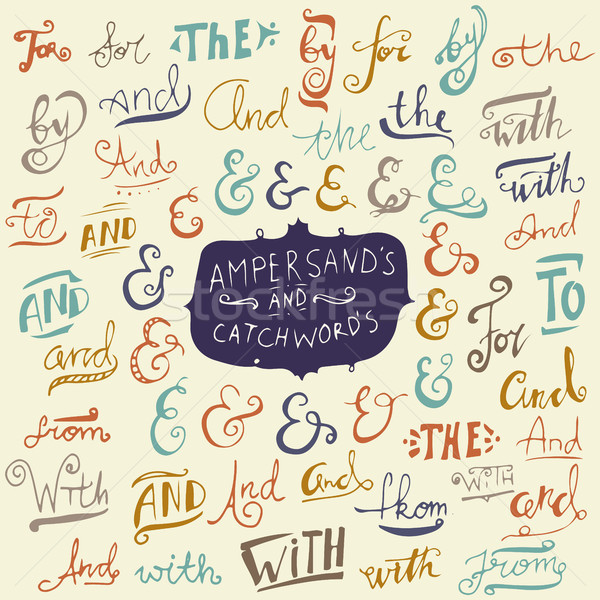 For for THE by for by the
by And And the the with
And & & & & & & with
to AND & And
AND & AMPERSAND'S & For TO
AND
CATCHWORD'S
and & & and
from & & & & & & THE And
With AND And and from WITH and
And with WITH with From
stockfresh